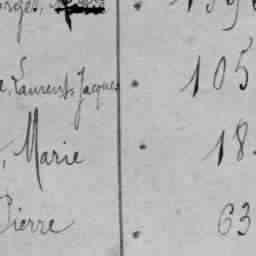 Laurent, Jacques 105
, Marie 18
Pierre 63